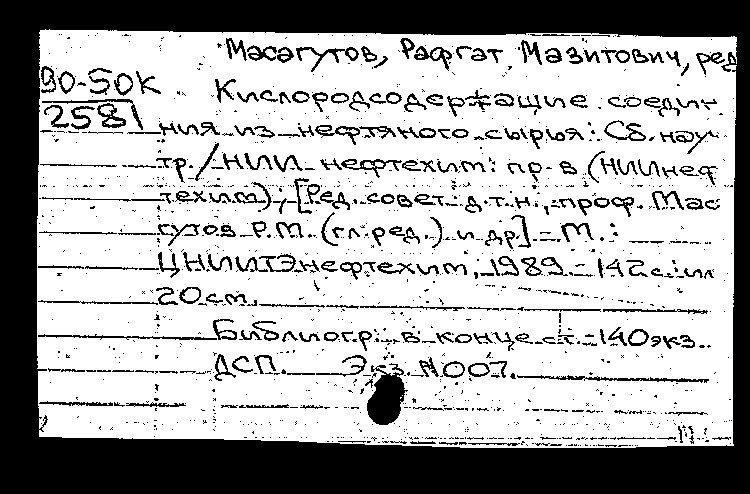 Масагутов, Рафгат Мазитович, ред
90-50К
2581
Кислородсодержащие соедин
ния из нефтяного сырья: Сб. науч
тр. / НИИ нефтехим. пр-в (НИИнеф
техим); [Ред. совет д.т.н., проф. Мас
гутов Р.М. (гл. ред.) и др.] - М.:
ЦНИИТЭнефтехим, 1989. - 142 с.: ил
20 см.
Библиогр. в конце ст. - 140 экз.
ДСП. Экз. N007.